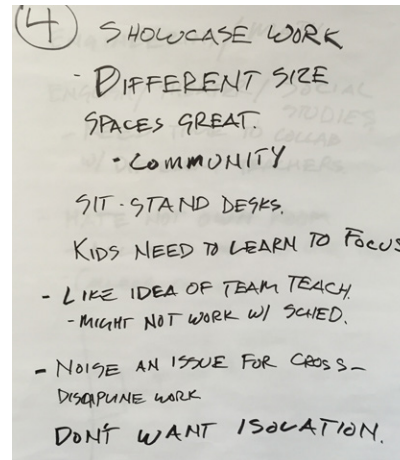 4 SHOWCASE WORK
- DIFFERENT SIZE
SPACES GREAT
- COMMUNITY
SIT-STAND DESKS.
KIDS NEED TO LEARN TO FOCUS
- LIKE IDEA OF TEAM TEACH.
- MIGHT NOT WORK W/ SCHED.
- NOISE AN ISSUE FOR CROSS-
DISCIPLINE WORK
DON'T WANT ISOLATION.